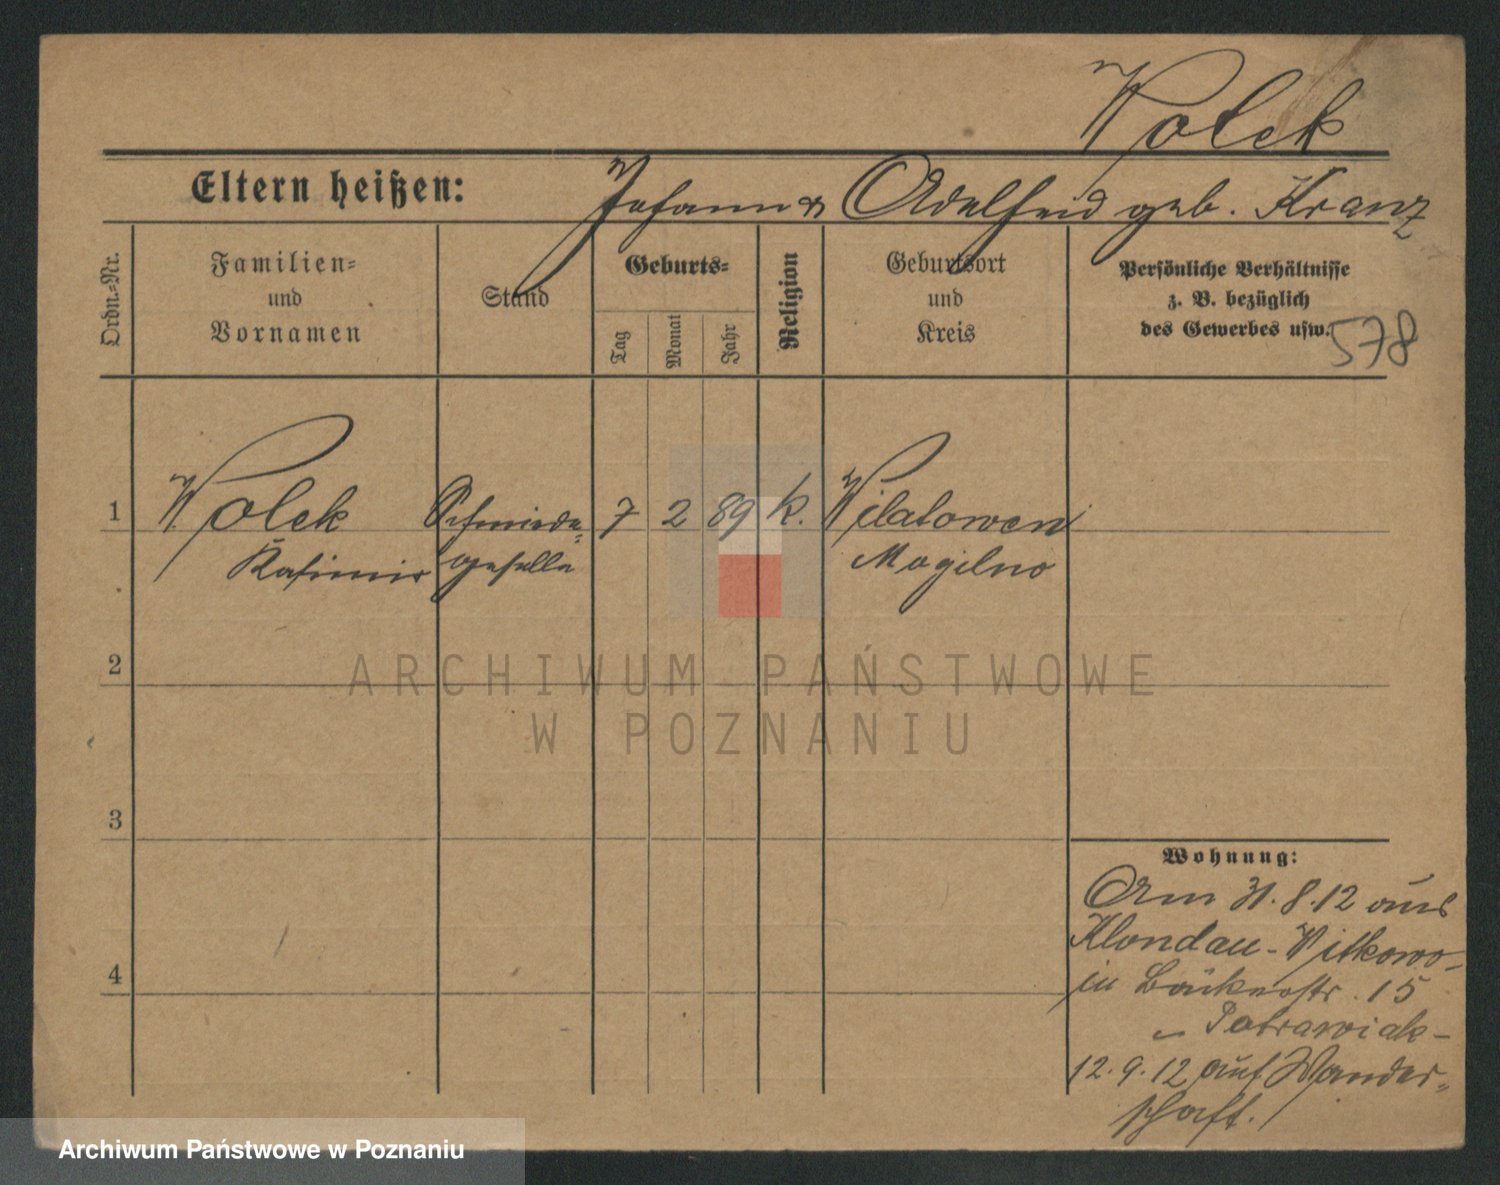 Wolek
Eltern heißen: Johann & Adelheid geb. Kranz
Ordn.=Nr.
Familien=
und
Vornamen
Stand
Geburts=
Tag
Monat
Jahr
Religion
Geburtsort
und
Kreis
Persönliche Verhältnisse
z. B. bezüglich
des Gewerbes usw.
578
1 Wolek Schmiede= 7 2 89 k. Wilatowen
Kasimir geselle Mogilno
2
ARCHIWUM PAŃSTWOWE
W POZNANIU
3
Wohnung:
Am 31.8.12 aus
Klondau-Witkowo-
in Bäckerstr. 15
4
12.9.12 auf Wander=
schaft.
Archiwum Państwowe w Poznaniu